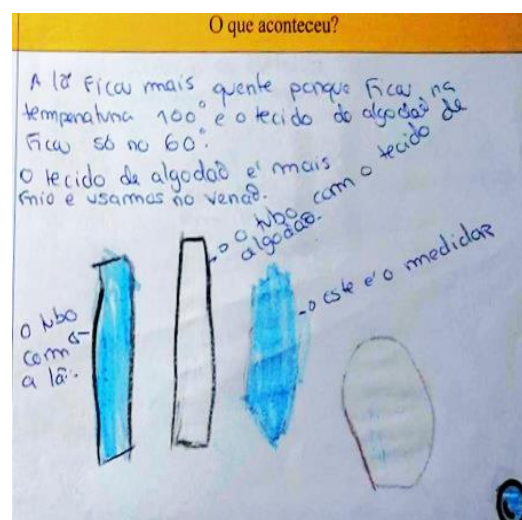 O que aconteceu?
A lã ficou mais quente porque ficou na
temperatura 100° e o tecido do algodão de
ficou só no 60°.
O tecido de algodão é mais
frio e usarmos no verão.
o tubo com o tecido
algodão.
o este é o medidor
o tubo
com
a lã.